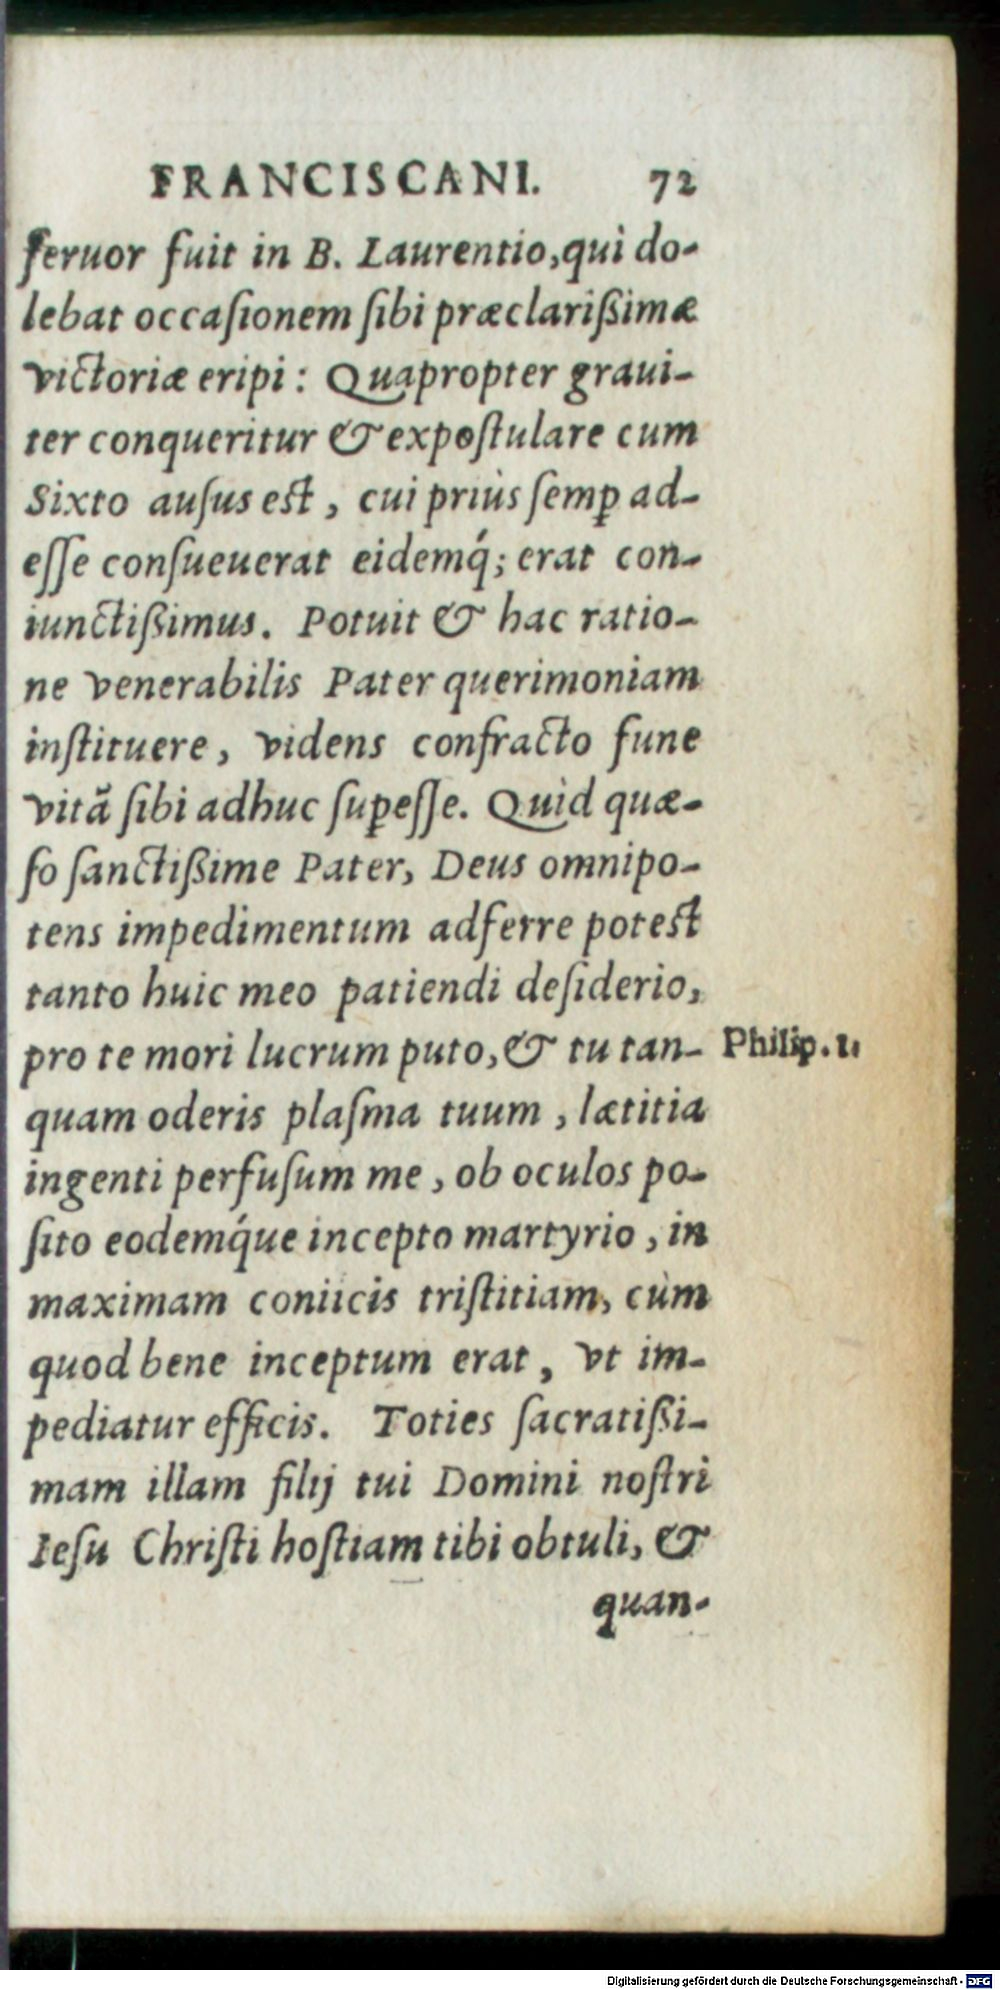 FRANCISCANI. 72
feruor fuit in B. Laurentio, qui do-
lebat occaſionem ſibi præclarißimæ
victoriæ eripi: Quapropter graui-
ter conqueritur & expoſtulare cum
Sixto auſus eſt, cui priùs ſemꝑ ad-
eſſe conſueuerat eidemq́; erat con-
iunctißimus. Potuit & hac ratio-
ne venerabilis Pater querimoniam
inſtituere, videns confracto fune
vitã ſibi adhuc ſuꝑeſſe. Quid quæ-
ſo ſanctißime Pater, Deus omnipo-
tens impedimentum adferre poteſt
tanto huic meo patiendi deſiderio,
pro te mori lucrum puto, & tu tan- Philip. 1.
quam oderis plaſma tuum, lætitia
ingenti perfuſum me, ob oculos po-
ſito eodemq́ue incepto martyrio, in
maximam coniicis triſtitiam, cùm
quod bene inceptum erat, vt im-
pediatur efficis. Toties ſacratißi-
mam illam filij tui Domini noſtri
Ieſu Chriſti hoſtiam tibi obtuli, &
quan-
Digitalisierung gefördert durch die Deutsche Forschungsgemeinschaft - DFG